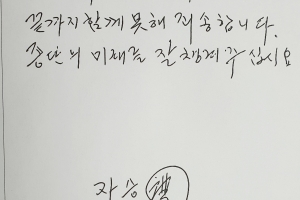 끝까지 함께 못해 죄송합니다.
종단의 미래를 잘 챙겨주십시요
자승